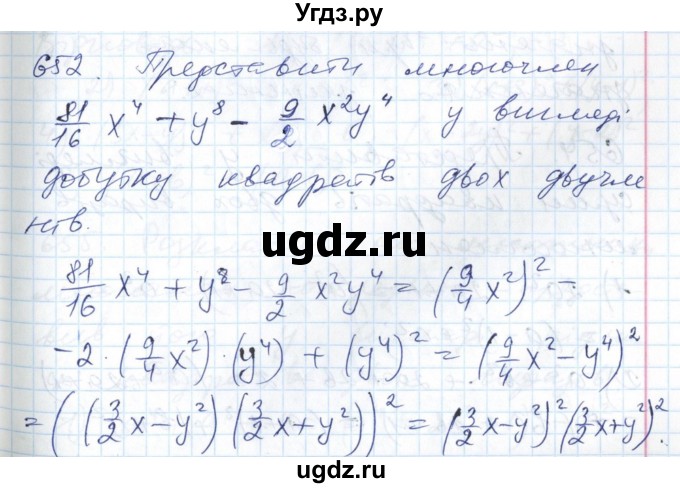 Угдз.ру
652. Представити многочлен
81/16 x⁴ + y⁸ − 9/2 x²y⁴ у вигляді
добутку квадратів двох двучле
нів.
81/16 x⁴ + y⁸ − 9/2 x²y⁴ = (9/4 x²)² −
− 2 · (9/4 x²) · (y⁴) + (y⁴)² = (9/4 x² − y⁴)²
= ((3/2 x − y²)(3/2 x + y²))² = (3/2 x − y²)² (3/2 x + y²)².
ugdz.ru
ugdz.ru
ugdz.ru